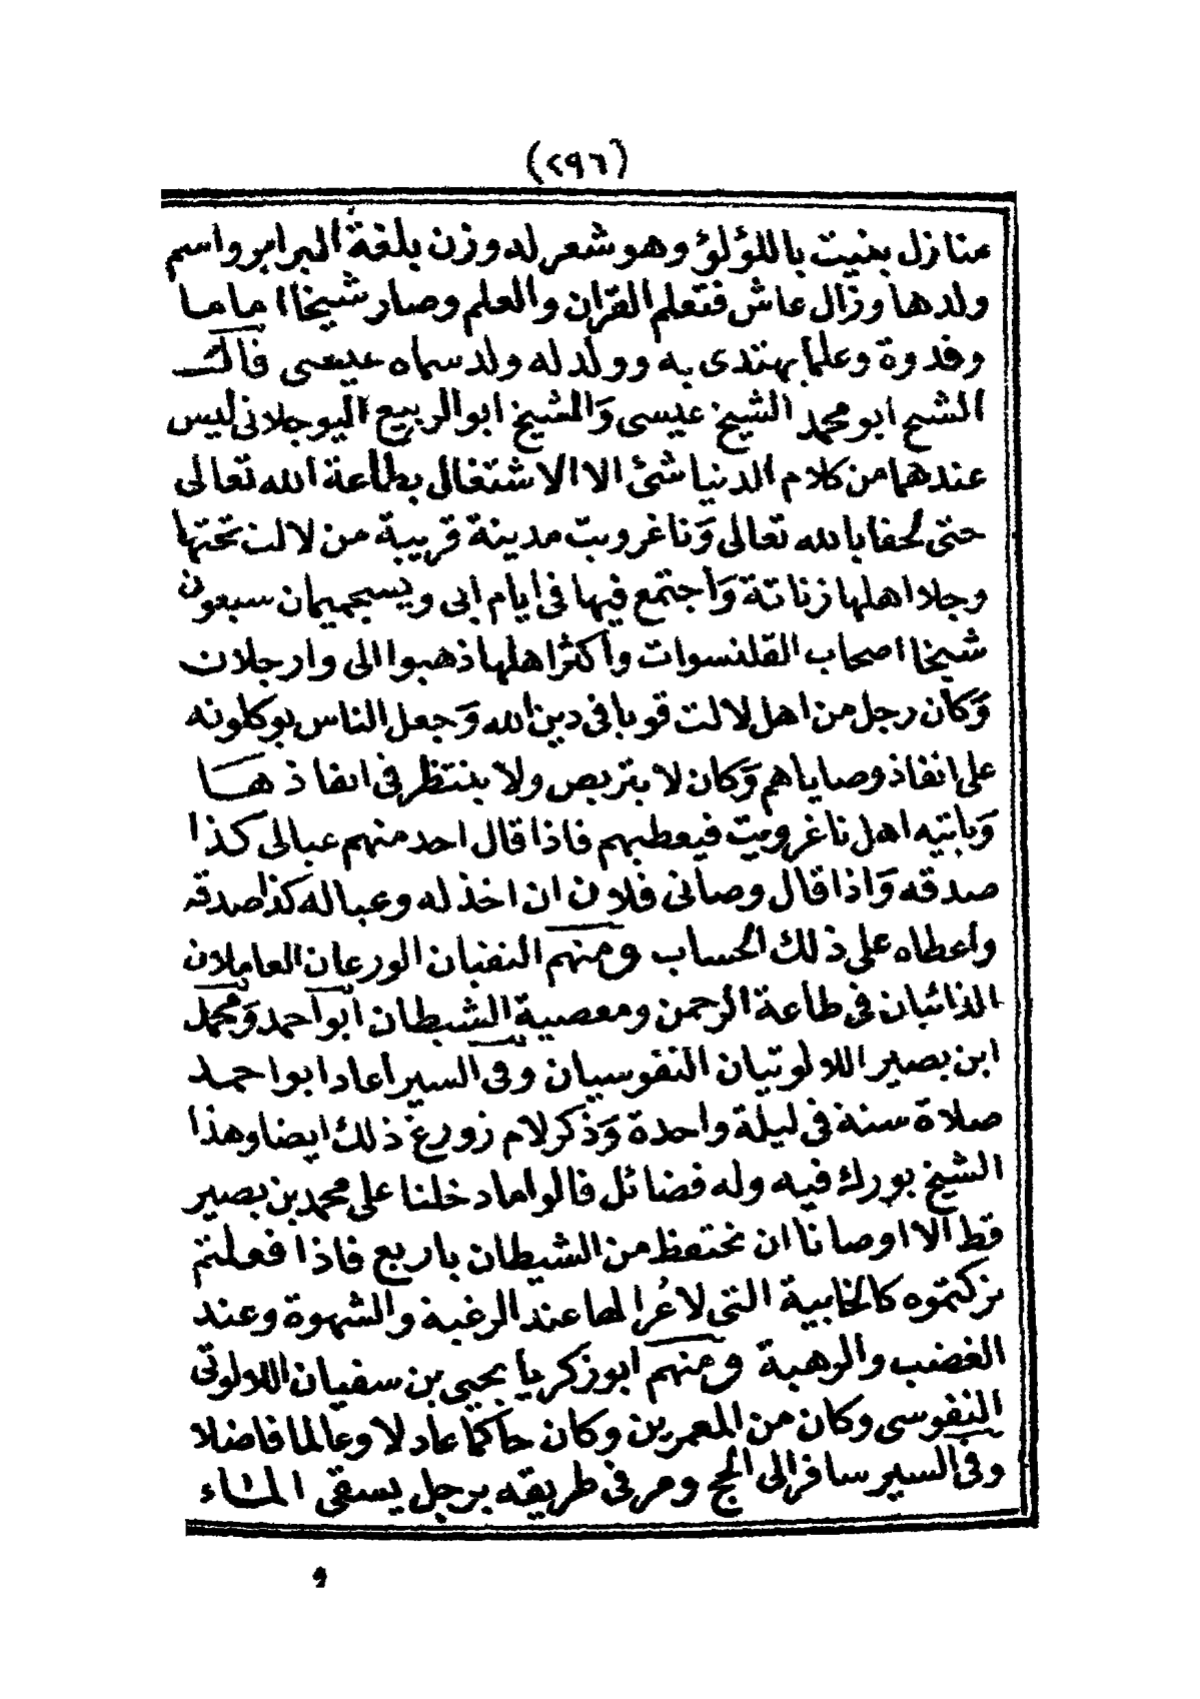 (٢٩٦)
منازل بنيت باللؤلؤ وهو شعر له وزن بلغة البرابر واسم
ولدها وزال عاش فتعلم القران والعلم وصار شيخا اماما
وقدوة وعلما يهتدى به وولد له ولد سماه عيسى قالت
الشيخ ابو محمد الشيخ عيسى والشيخ ابو الربيع اليوجلانى ليس
عندهما من كلام الدنيا شئ الا الاشتغال بطاعة الله تعالى
حتى لحقا بالله تعالى وناغرويت مدينة قريبة من لالت تحتها
وجلا اهلها زناتة واجتمع فيها فى ايام ابى ويسجميمان سبعون
شيخا اصحاب القلنسوات واكثر اهلها ذهبوا الى وارجلان
وكان رجل من اهل لالت قويا فى دين الله وجعل الناس يوكلونه
على انفاذ وصاياهم وكان لا يتربص ولا ينتظر فى انفاذها
وياتيه اهل ناغرويت فيعطيهم فاذا قال احد منهم عيالى كذا
صدقه واذا قال وصانى فلان ان اخذ له وعياله كذا صدقه
واعطاه على ذلك الحساب ومنهم التقيان الورعان العاملان
الذائبان فى طاعة الرحمن ومعصية الشيطان ابو احمد ومحمد
ابن بصير اللالوتيان النفوسيان وفى السير اعاد ابو احمد
صلاة سنة فى ليلة واحدة وذكر لام زورغ ذلك ايضا وهذا
الشيخ بورك فيه وله فضائل قالوا ما دخلنا على محمد بن بصير
قط الا اوصانا ان نحتفظ من الشيطان باربع فاذا فعلتم
تركتموه كالخابية التى لا عرا لها عند الرغبة والشهوة وعند
الغضب والرهبة ومنهم ابو زكريا يحيى بن سفيان اللالوتى
النفوسى وكان من المعمرين وكان حاكما عادلا وعالما فاضلا
وفى السير سافر الى الحج ومر فى طريقه برجل يسقى الماء
و